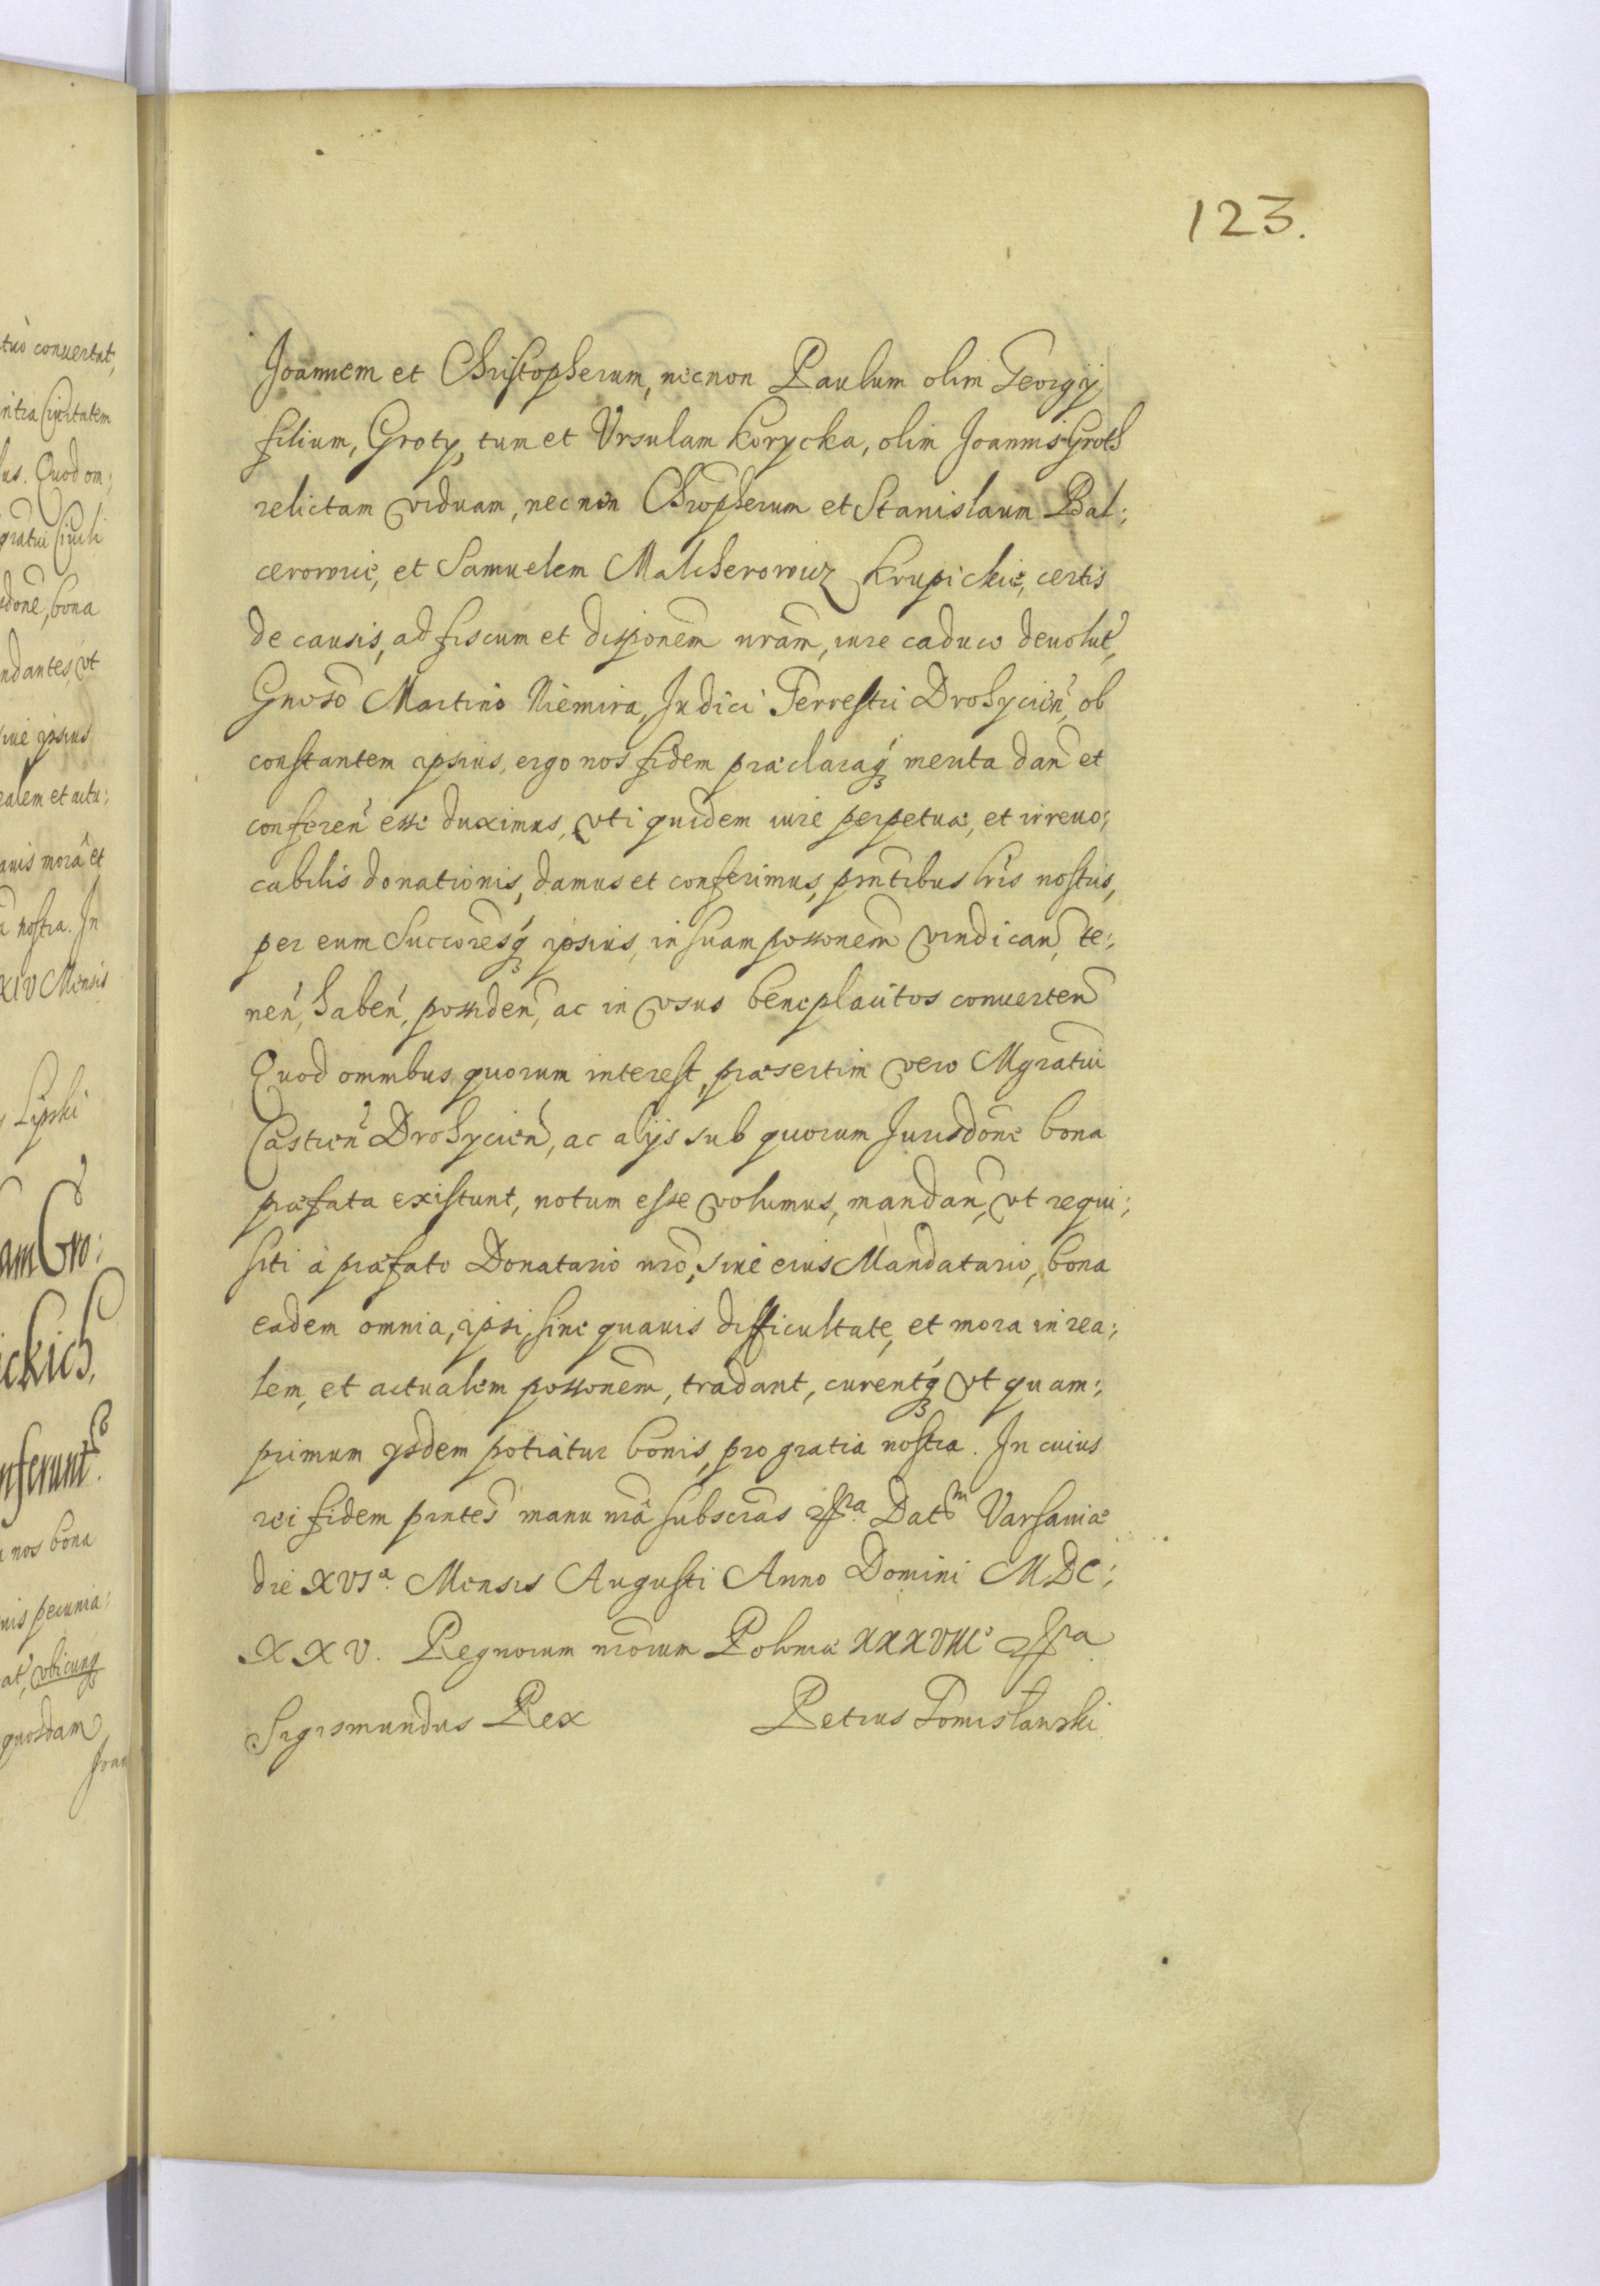 123.
Joannem et Christopherum, necnon Paulum olim Georgij
filium, Groty, tum et Vrsulam Korycka, olim Joannis Groth
relictam viduam, necnon Chropherum et Stanislaum Bal:
cerowic, et Samuelem Malcherowicz Krupickie, certis
de causis, ad fiscum et disponem nram, iure caduco deuolut,
Gnoso Martino Niemira, Judici Terrestri Drohycien, ob
constantem ipsius, ergo nos fidem præclaraq merita dan et
conferen esse duximus, vti quidem iure perpetuæ, et irreuo:
cabilis donationis, damus et conferimus, pntibus lris nostris,
per eum Succoresq ipsius, in suam possonem vindican, te:
nen, haben, possiden, ac in vsus beneplacitos conuerten
Quod omnibus quorum interest, præsertim vero Mgratui
Castren Drohycien, ac alijs sub quorum Jurisdone bona
præfata existunt, notum esse volumus, mandan, vt requi:
siti à præfato Donatario nro, siue eius Mandatario, bona
eadem omnia, ipsi, sine quauis difficultate, et mora in rea:
lem, et actualem possonem, tradant, curentq vt quam:
primum ijsdem potiatur bonis, pro gratia nostra. In cuius
rei fidem pntes manu nra subscras Datm Varsauiæ
die XVIa. Mensis Augusti Anno Domini MDC:
XXV. Regnorum nrorum Poloniæ XXXVIII
Sigismundus Rex Petrus Tomisławski
tuò conuertat,
intra Ciuitatem
us. Quod om:
gratui Ciuili
done, bona
ndantes, vt
siue ipsius
ealem et actu:
auis morâ et
nostra. In
XIV Mensis
Lipski
am Gro:
ickich,
nferunt.
nos bona
nis pecunia:
at, vbicunq
quosdam
Joan